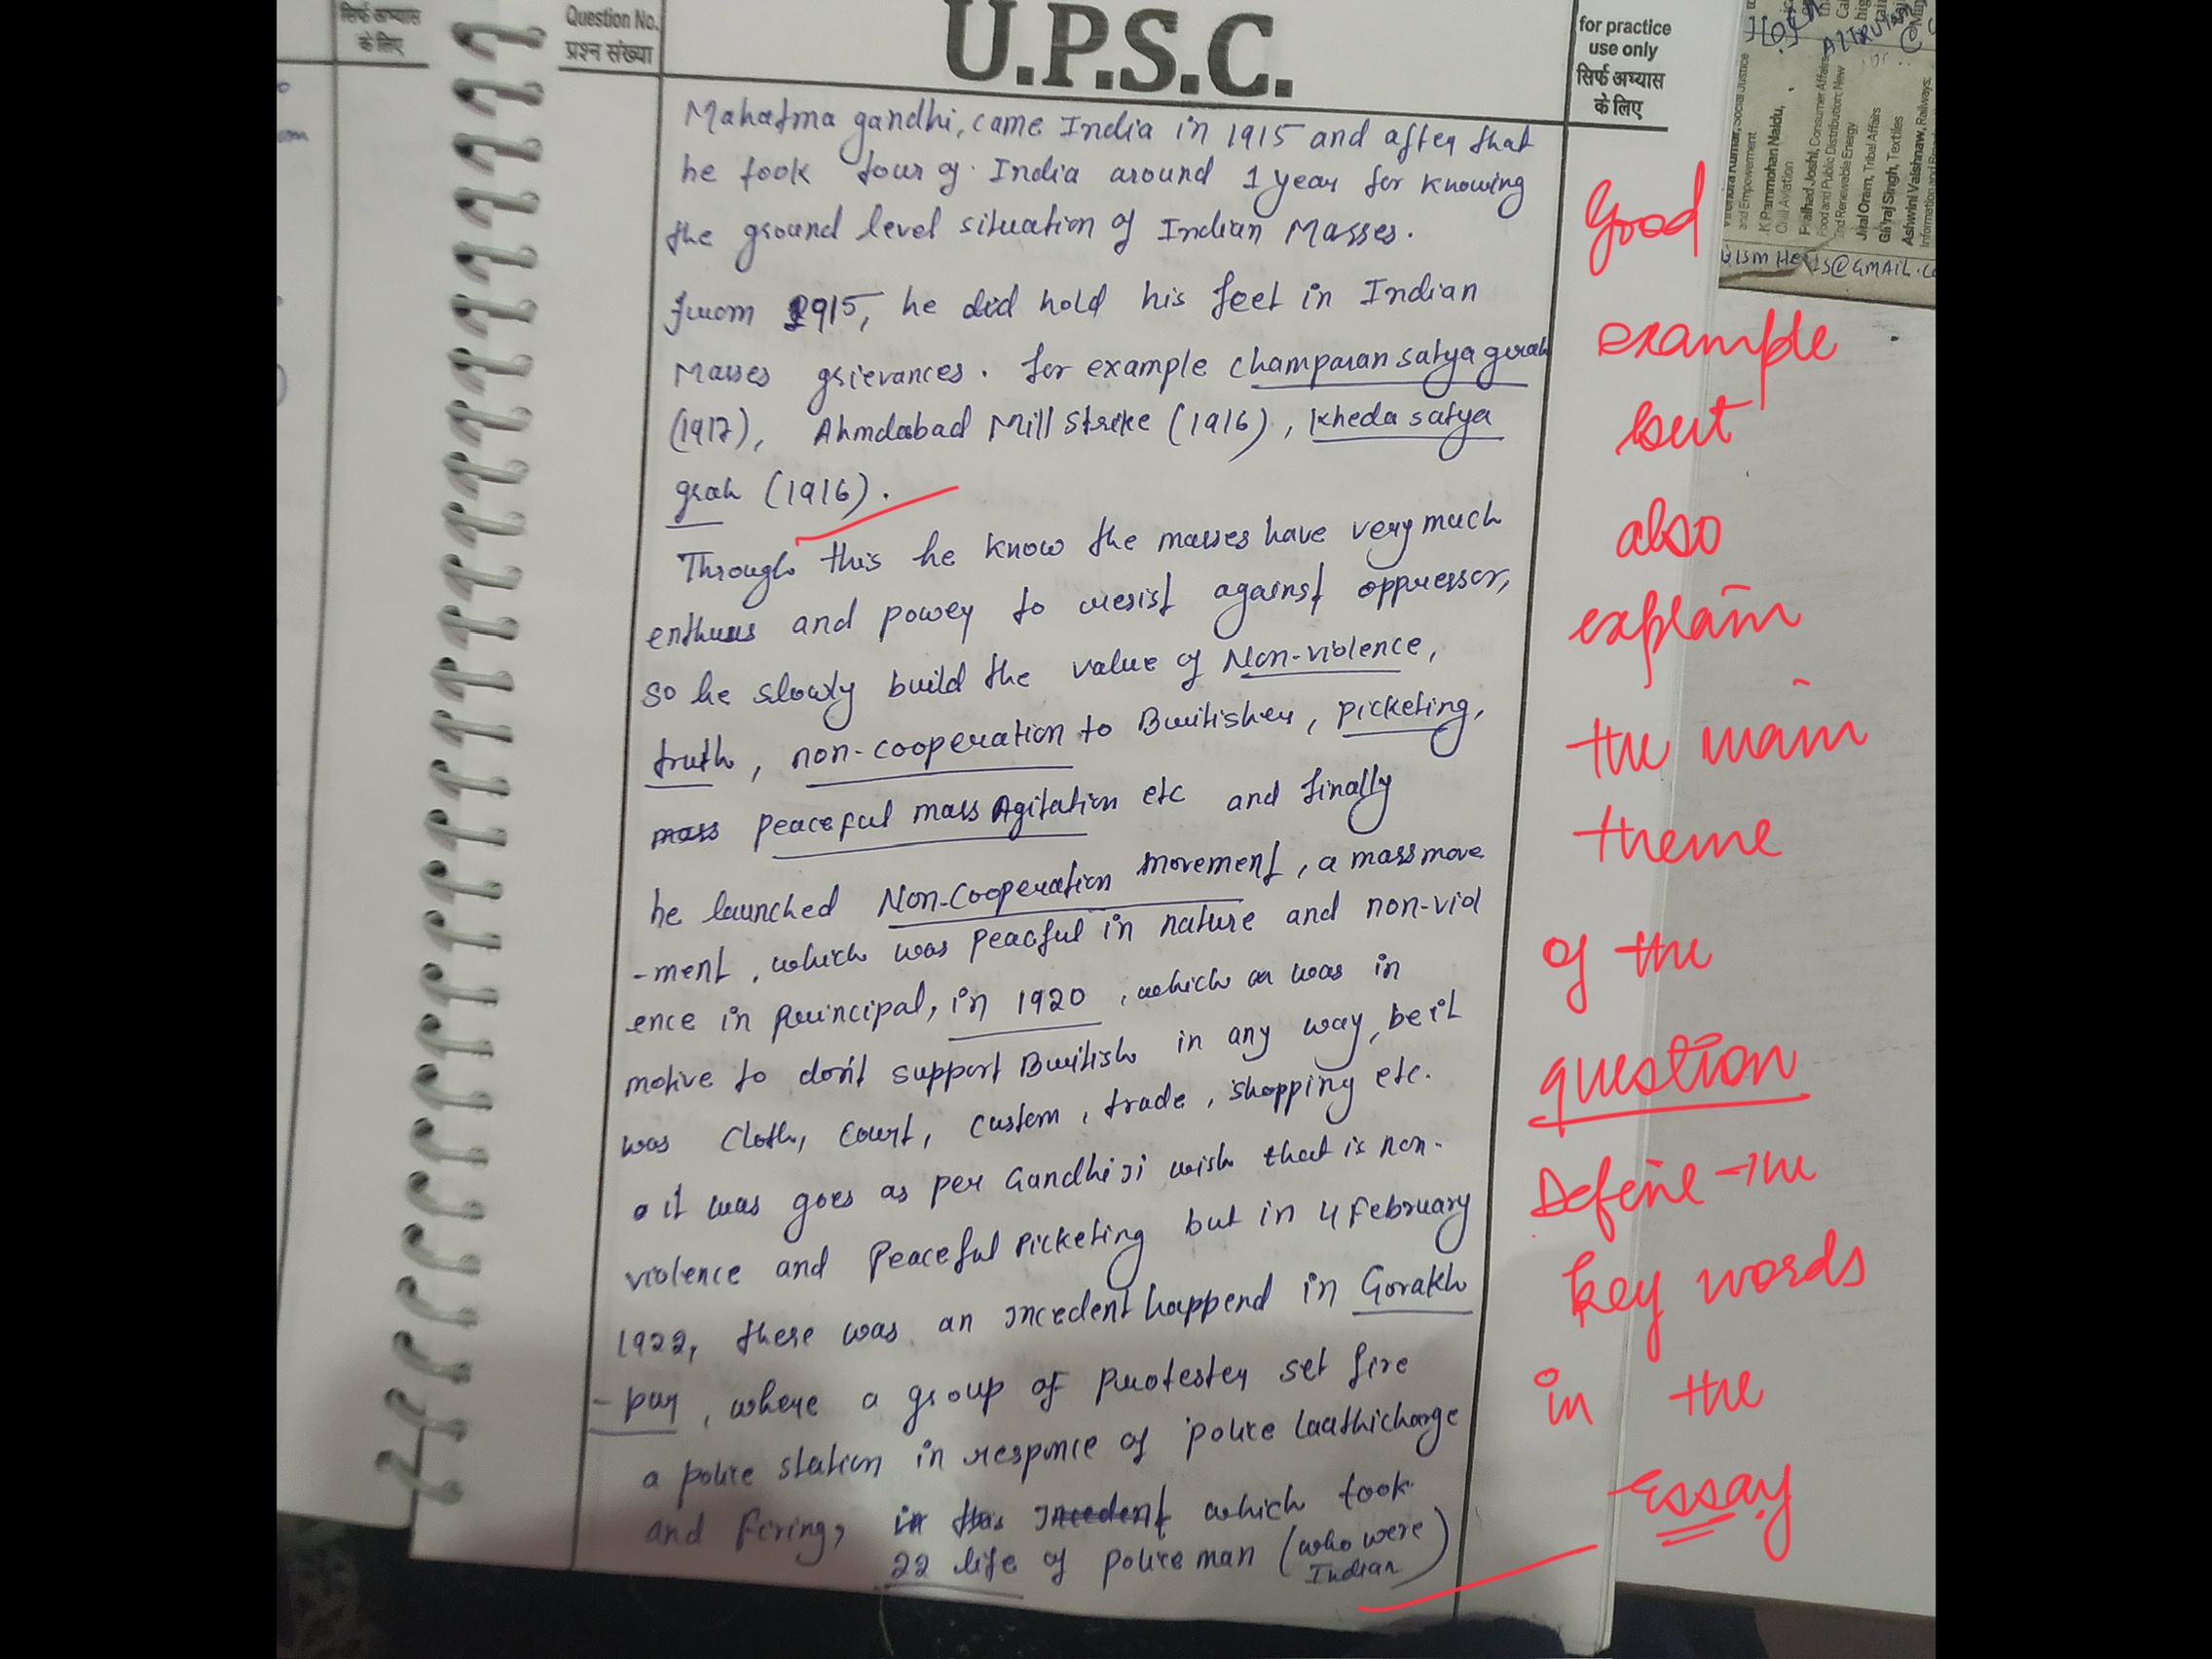 सिर्फ अभ्यास
के लिए
Question No.
प्रश्न संख्या
U.P.S.C.
for practice
use only
सिर्फ अभ्यास
के लिए
Mahatma gandhi, came India in 1915 and after that
he took tour of India around 1 year for knowing
the ground level situation of Indian Masses.
from 1915, he did hold his feet in Indian
Masses grievances. for example champaran satyagrah
(1917), Ahmdabad Mill Strike (1916), Kheda satya
grah (1916).
Through this he know the masses have very much
enthuus and power to resist against oppressor,
so he slowly build the value of Non-violence,
truth, non-cooperation to Britisher, picketing,
mass peaceful mass Agitation etc and finally
he launched Non-Cooperation Movement, a mass move
-ment, which was peacful in nature and non-viol
ence in principal, in 1920, which was in
motive to don't support British in any way, be it
was cloth, court, custom, trade, shopping etc.
it was goes as per Gandhiji wish that is non-
violence and Peaceful Picketing but in 4 February
1922, there was an incedent happend in Gorakh
-pur, where a group of protester set fire
a police station in responce of police laathicharge
and firing, in this incedent which took
22 life of police man (who were
Indian)
Good
example
but
also
explain
the main
theme
of the
question
Define the
key words
in the
essay
and Empowerment
K Rammohan Naidu,
Civil Aviation
Pralhad Joshi, Consumer Affairs,
Food and Public Distribution; New
and Renewable Energy
Jual Oram, Tribal Affairs
Giriraj Singh, Textiles
Ashwini Vaishnaw, Railways;